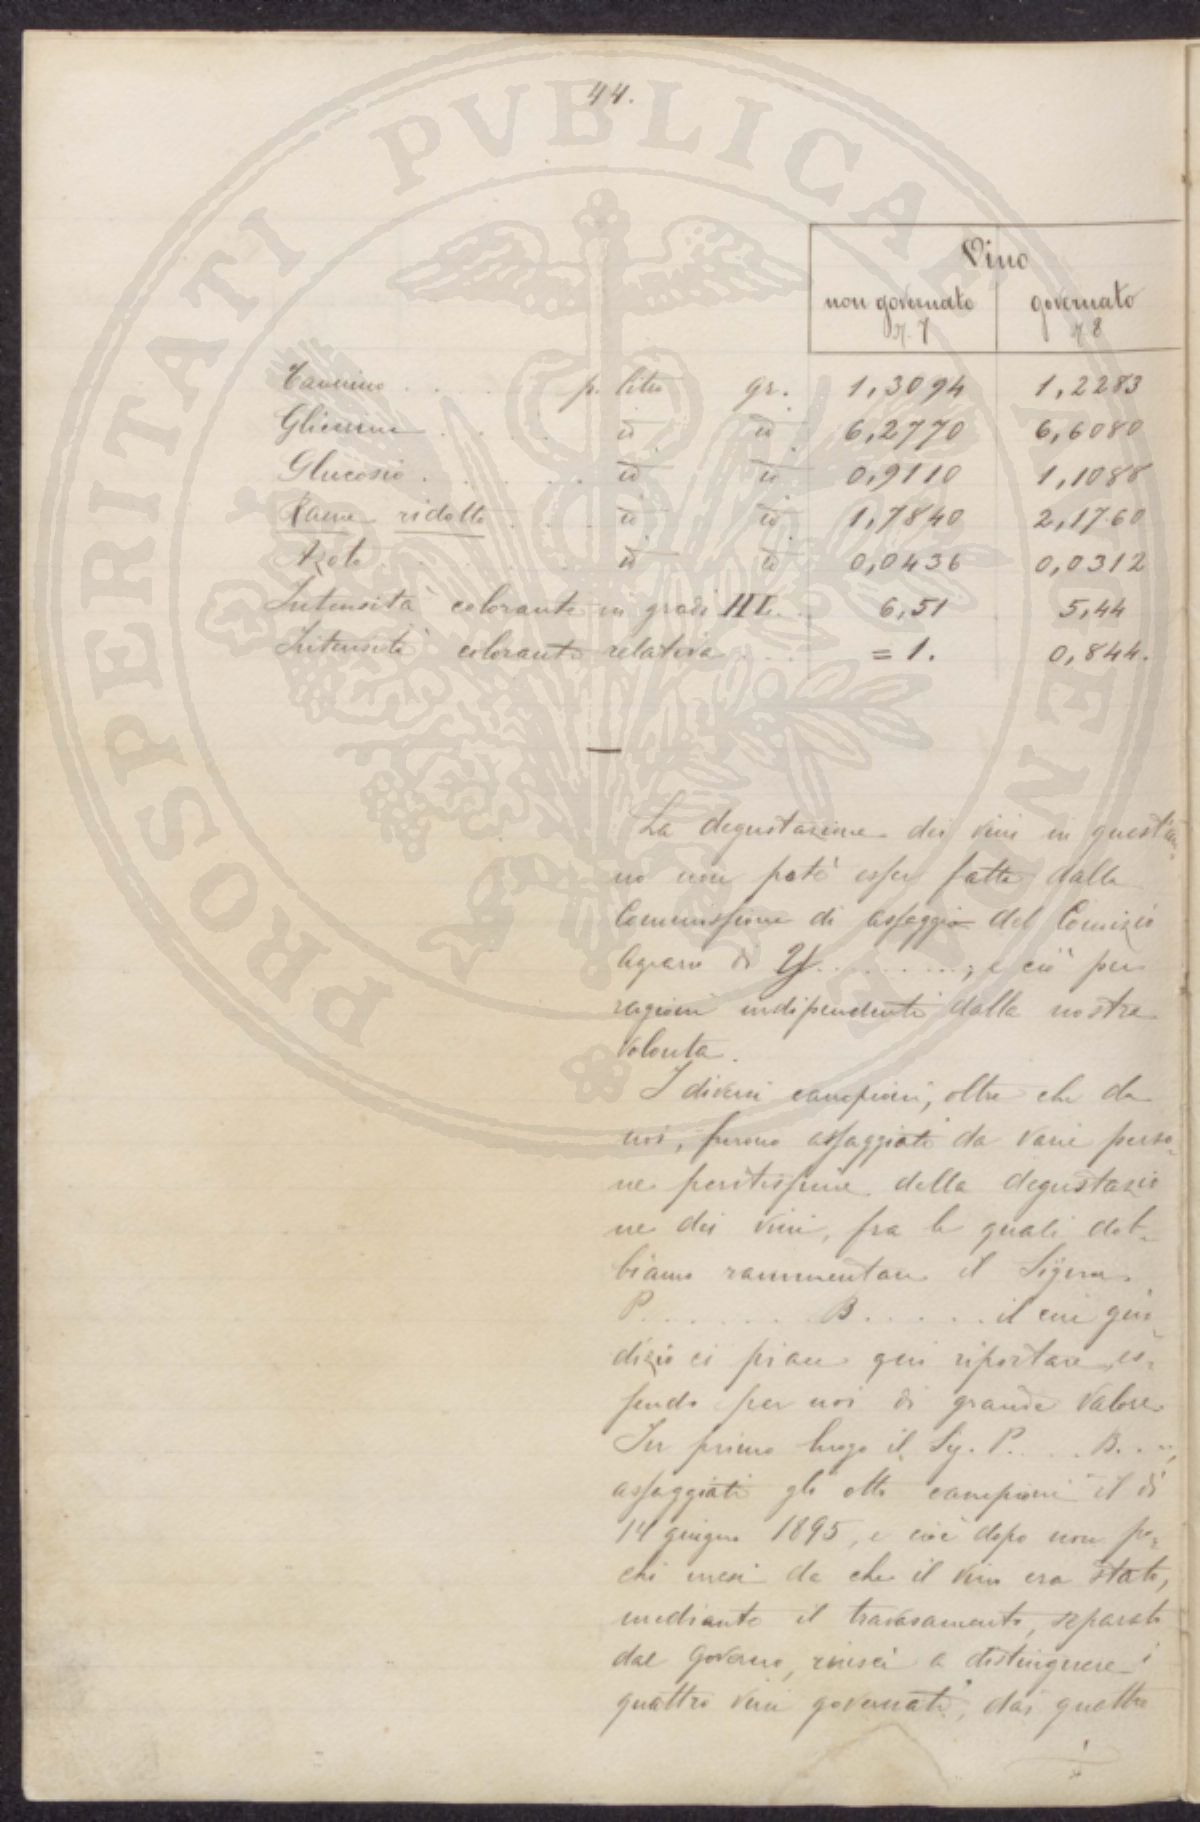 44.
Vino
non governato governato
N. 7 N. 8
Tannino . . . . . p. litro gr. 1,3094 1,2283
Glicerina . . . . id id 6,2770 6,6080
Glucosio . . . . . id id 0,9110 1,1088
Rame ridotto . . . id id 1,7840 2,1760
Azoto . . . . . . id id 0,0436 0,0312
Intensità colorante in gradi . . 6,51 5,44
Intensità colorante relativa . . . = 1. 0,844.
—
La degustazione dei vini in quest'an-
no non potè esser fatta dalla
Commissione di assaggio del Comizio
Agrario di Y . . . . . . . . . ; e ciò per
ragioni indipendenti dalla nostra
volontà.
I diversi campioni, oltre che da
noi, furono assaggiati da varie perso-
ne peritissime della degustazio
ne dei vini, fra le quali dob-
biamo rammentare il Signor
P . . . . . . . . B . . . . . il cui giu-
dizio ci piace qui riportare es-
sendo per noi di grande valore
In primo luogo il Sig. P. . . . B. . . ,
assaggiati gli otto campioni il dì
14 giugno 1895, e cioè dopo non po-
chi mesi da che il vino era stato,
mediante il travasamento, separato
dal governo, riuscì a distinguere i
quattro vini governati, dai quattro
PROSPERITATI PVBLICAE AVGENDAE